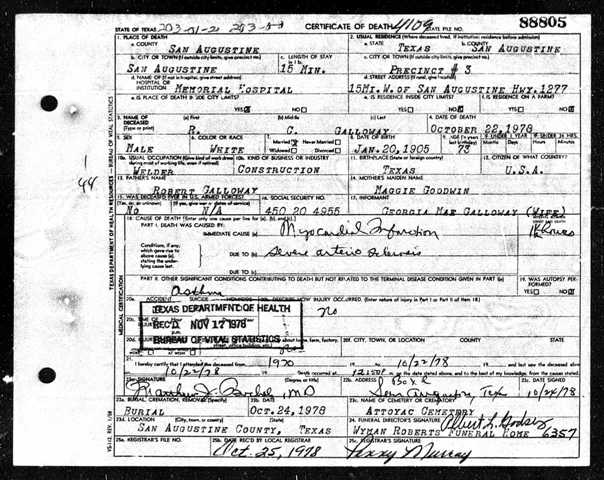 CERTIFICATE OF DEATH 88805
STATE OF TEXAS
1. PLACE OF DEATH
a. COUNTY SAN AUGUSTINE
2. USUAL RESIDENCE (Where deceased lived, if institution: residence before admission)
a. STATE TEXAS b. COUNTY SAN AUGUSTINE
b. CITY OR TOWN (If outside city limits, give precinct no.)
SAN AUGUSTINE
c. LENGTH OF STAY
15 MIN.
c. CITY OR TOWN (If outside city limits, give precinct no.)
PRECINCT # 3
d. NAME OF (If not in hospital, give street address)
HOSPITAL OR
INSTITUTION MEMORIAL HOSPITAL
d. STREET ADDRESS (If rural, give location)
15MI. W. OF SAN AUGUSTINE HWY. 1277
e. IS PLACE OF DEATH INSIDE CITY LIMITS?
YES NO
e. IS RESIDENCE INSIDE CITY LIMITS?
YES NO
f. IS RESIDENCE ON A FARM?
YES NO
3. NAME OF DECEASED (Type or print)
(a) First R. (b) Middle C. (c) Last GALLOWAY
4. DATE OF DEATH
OCTOBER 22, 1978
5. SEX MALE
6. COLOR OR RACE WHITE
7. Married Never Married
Widowed Divorced
8. DATE OF BIRTH JAN. 20, 1905
73
10a. USUAL OCCUPATION (Give kind of work done during most of working life, even if retired)
WELDER
10b. KIND OF BUSINESS OR INDUSTRY
CONSTRUCTION
11. BIRTHPLACE (State or foreign country)
TEXAS
12. CITIZEN OF WHAT COUNTRY?
U.S.A.
13. FATHER'S NAME
ROBERT GALLOWAY
14. MOTHER'S MAIDEN NAME
MAGGIE GOODWIN
15. WAS DECEASED EVER IN U.S. ARMED FORCES?
NO N/A
16. SOCIAL SECURITY NO.
450 20 4955
17. INFORMANT
GEORGIA MAE GALLOWAY (WIFE)
18. CAUSE OF DEATH [Enter only one cause per line for (a), (b), and (c).]
PART I. DEATH WAS CAUSED BY:
IMMEDIATE CAUSE (a) Myocardial Infarction
Conditions, if any, which gave rise to above cause (a), stating the underlying cause last.
DUE TO (b) Severe arterio sclerosis
DUE TO (c)
PART II. OTHER SIGNIFICANT CONDITIONS CONTRIBUTING TO DEATH BUT NOT RELATED TO THE TERMINAL DISEASE CONDITION GIVEN IN PART I(a)
Asthma
19. WAS AUTOPSY PERFORMED?
YES NO
20a. ACCIDENT SUICIDE HOMICIDE
20b. DESCRIBE HOW INJURY OCCURRED. (Enter nature of injury in Part I or Part II of item 18.)
No
TEXAS DEPARTMENT OF HEALTH
REC'D NOV 17 1978
BUREAU OF VITAL STATISTICS
20f. CITY, TOWN, OR LOCATION COUNTY STATE
21. I hereby certify that I attended the deceased from 1970 to 10/22/78
10/22/78 Death occurred at 12:15 P m. on the date stated above, and to the best of my knowledge, from the causes stated.
22a. SIGNATURE (Degree or title)
MD
22b. ADDRESS
San Augustine, Tex
22c. DATE SIGNED
10/24/78
23a. BURIAL, CREMATION, REMOVAL (Specify)
BURIAL
23b. DATE
OCT. 24, 1978
23c. NAME OF CEMETERY OR CREMATORY
ATTOYAC CEMETERY
23d. LOCATION (City, town, or county) (State)
SAN AUGUSTINE COUNTY, TEXAS
24. FUNERAL DIRECTOR'S SIGNATURE
WYMAN ROBERTS FUNERAL HOME 6357
25a. REGISTRAR'S FILE NO.
25b. DATE REC'D BY LOCAL REGISTRAR
Oct. 25, 1978
25c. REGISTRAR'S SIGNATURE
Murray